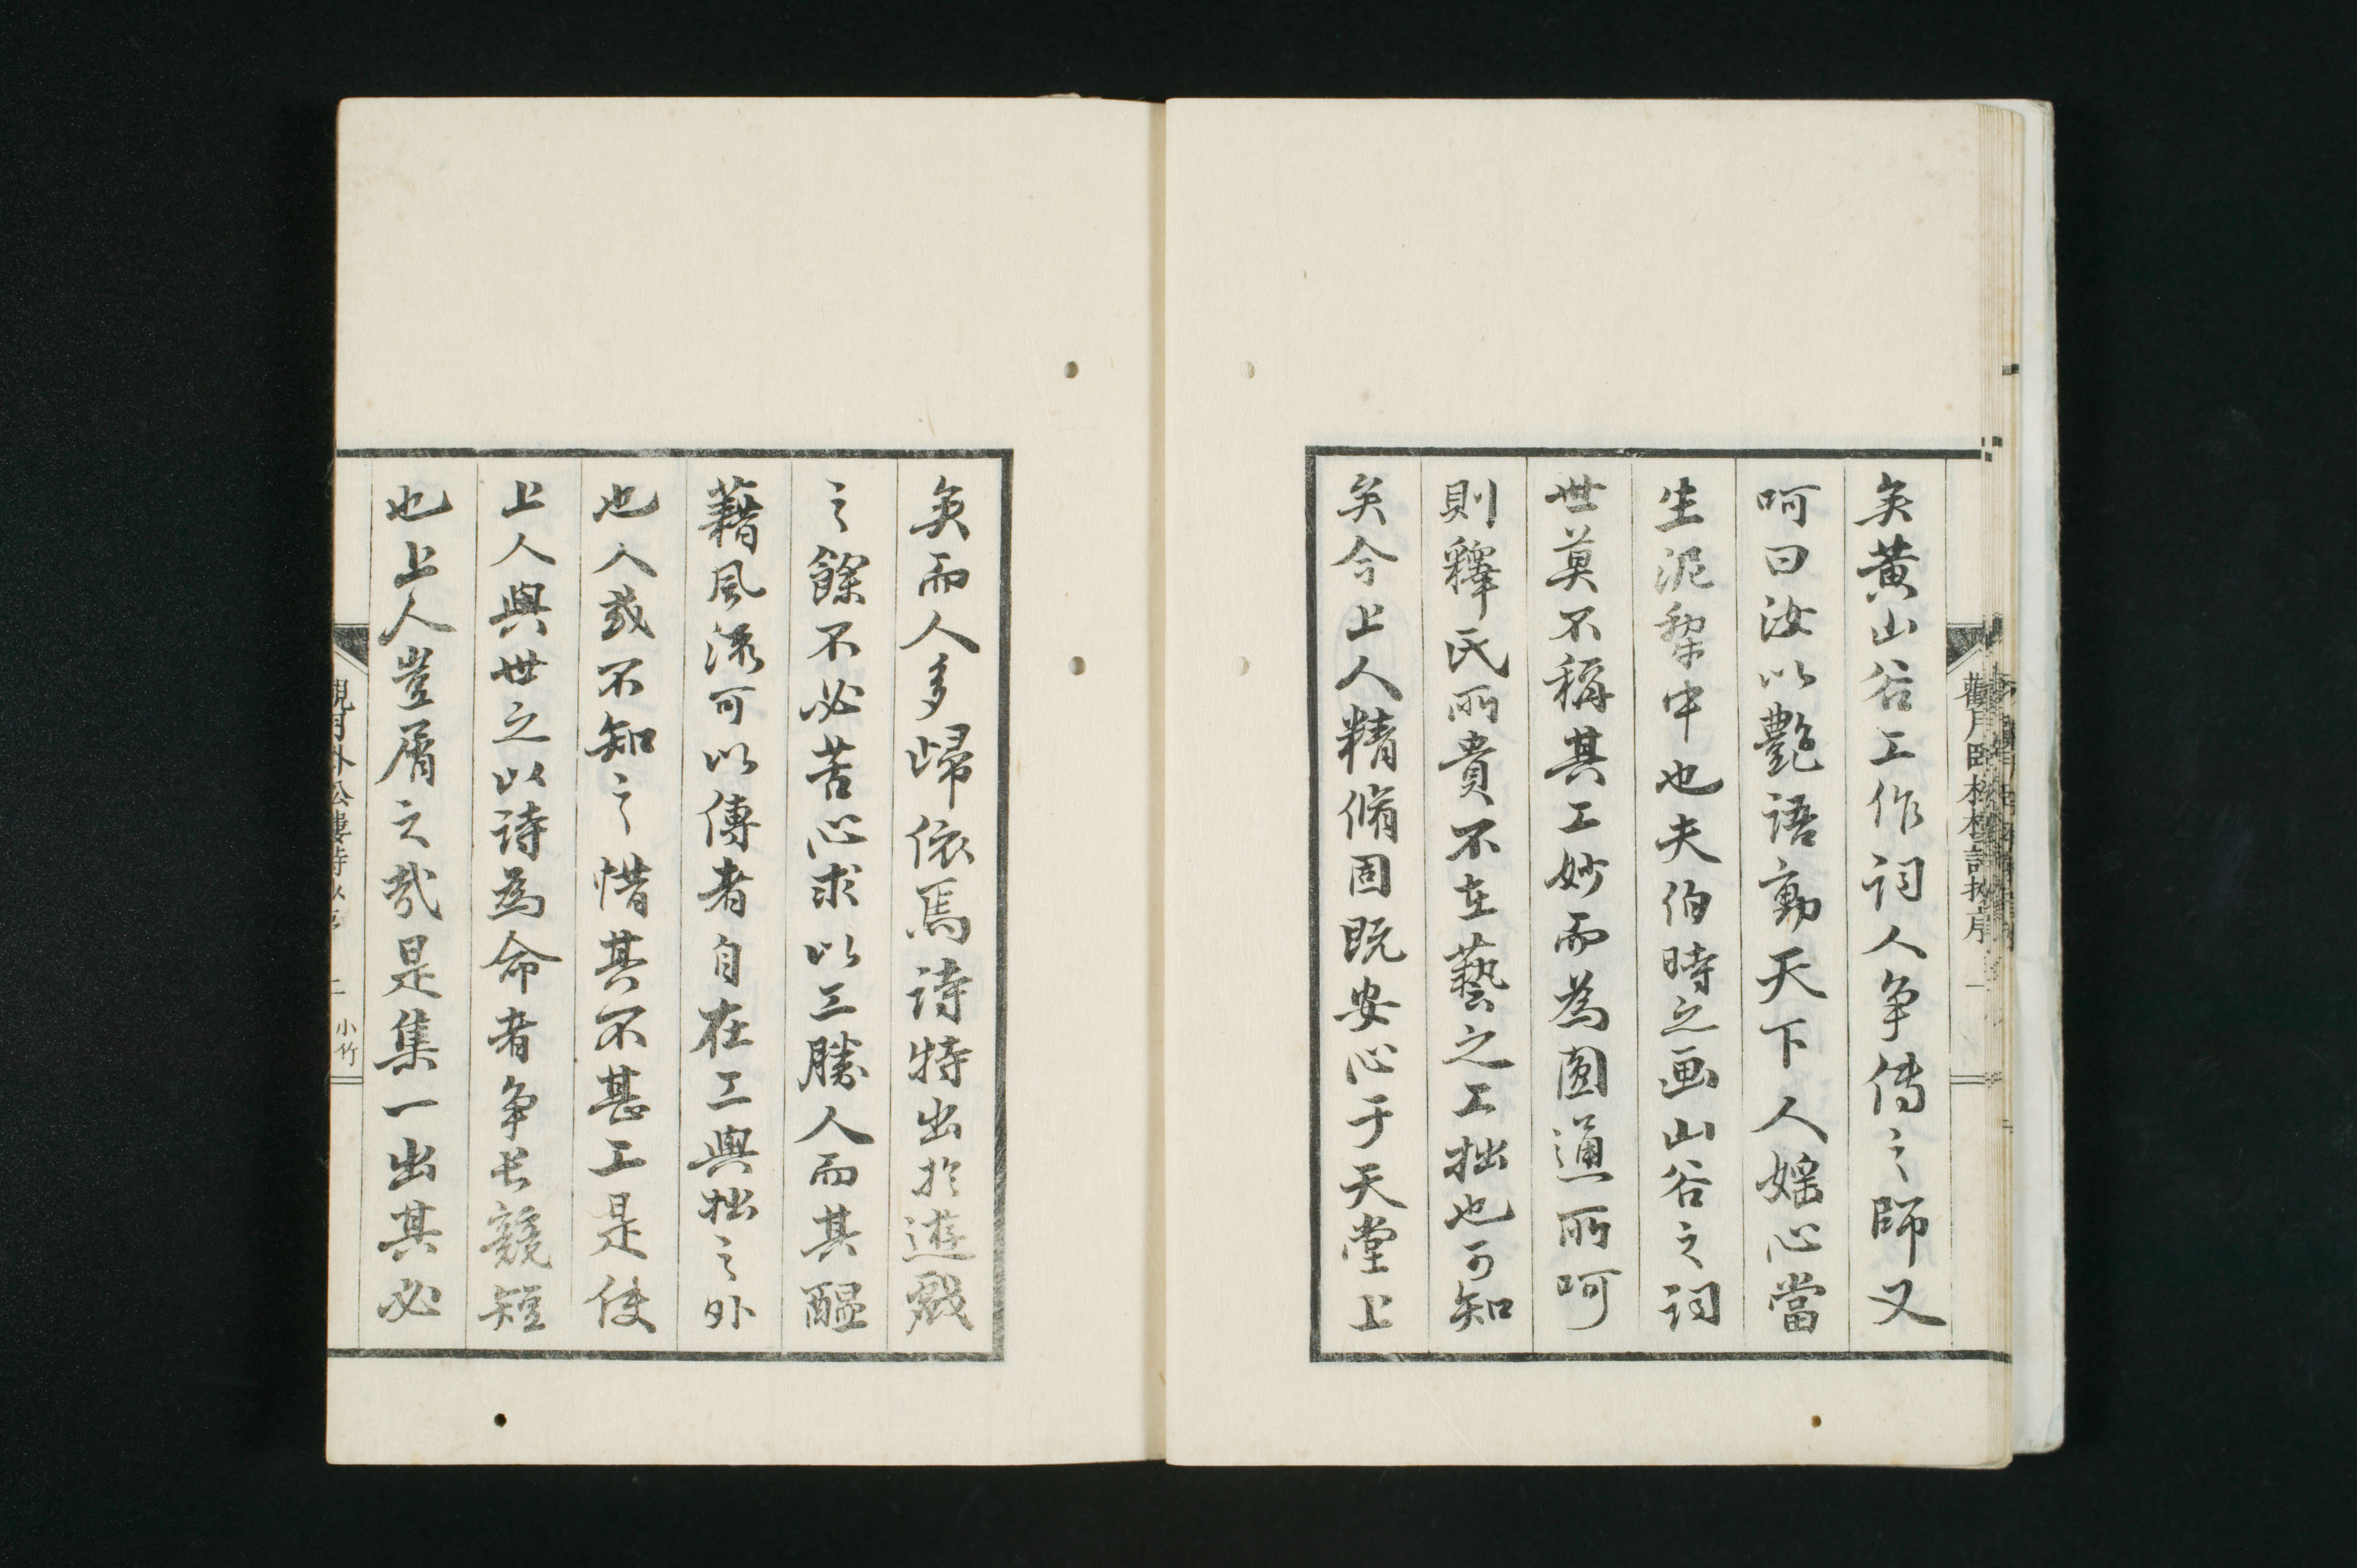 矣黄山谷工作詞人争傳之師又
呵曰汝以艶語動天下人婬心當
生泥犂中也夫伯時之画山谷之詞
世莫不稱其工妙而為圓通所呵
則釋氏所貴不在藝之工拙也可知
矣今上人精脩固既安心于天堂上
矣而人多歸依焉詩特出於遊戯
之餘不必苦心求以工勝人而其醞
藉風流可以傳者自在工與拙之外
也人或不知之惜其不甚工是使
上人與世之以詩為命者争長競短
也上人豈屑之哉是集一出其必
觀月臥松樓詩抄序 一
觀月臥松樓詩抄序 二 小竹